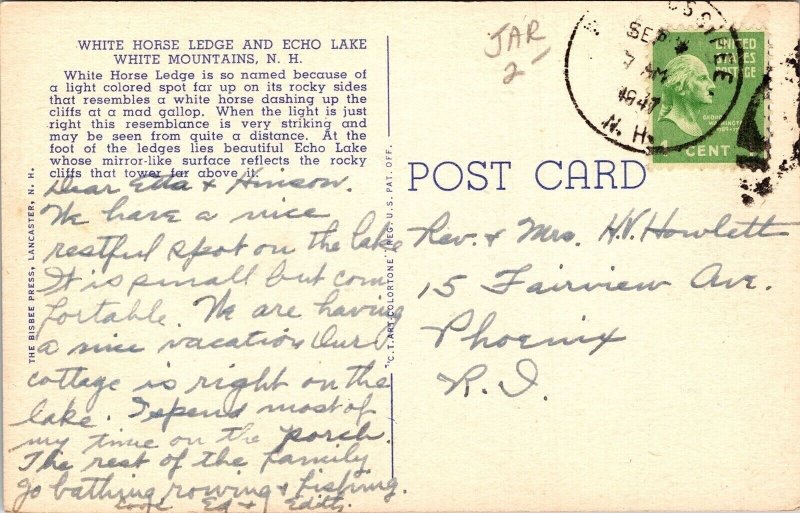 WHITE HORSE LEDGE AND ECHO LAKE
WHITE MOUNTAINS, N. H.
White Horse Ledge is so named because of
a light colored spot far up on its rocky sides
that resembles a white horse dashing up the
cliffs at a mad gallop. When the light is just
right this resemblance is very striking and
may be seen from quite a distance. At the
foot of the ledges lies beautiful Echo Lake
whose mirror-like surface reflects the rocky
cliffs that tower far above it.
Dear Etta & Hinson.
We have a nice
restful spot on the lake
It is small but com
fortable. We are having
a nice vacation Our
cottage is right on the
lake. I spend most of
my time on the porch.
The rest of the family
go bathing, rowing & fishing.
Love Ed & Edith.
THE BISBEE PRESS, LANCASTER, N. H.
"C.T. ART-COLORTONE" REG. U. S. PAT. OFF.
JAR
2
SEP
7 AM
1947
N. H.
UNITED
STATES
POSTAGE
1 CENT
POST CARD
Rev. & Mrs. H.V. Howlett
15 Fairview Ave.
Phoenix
R.I.